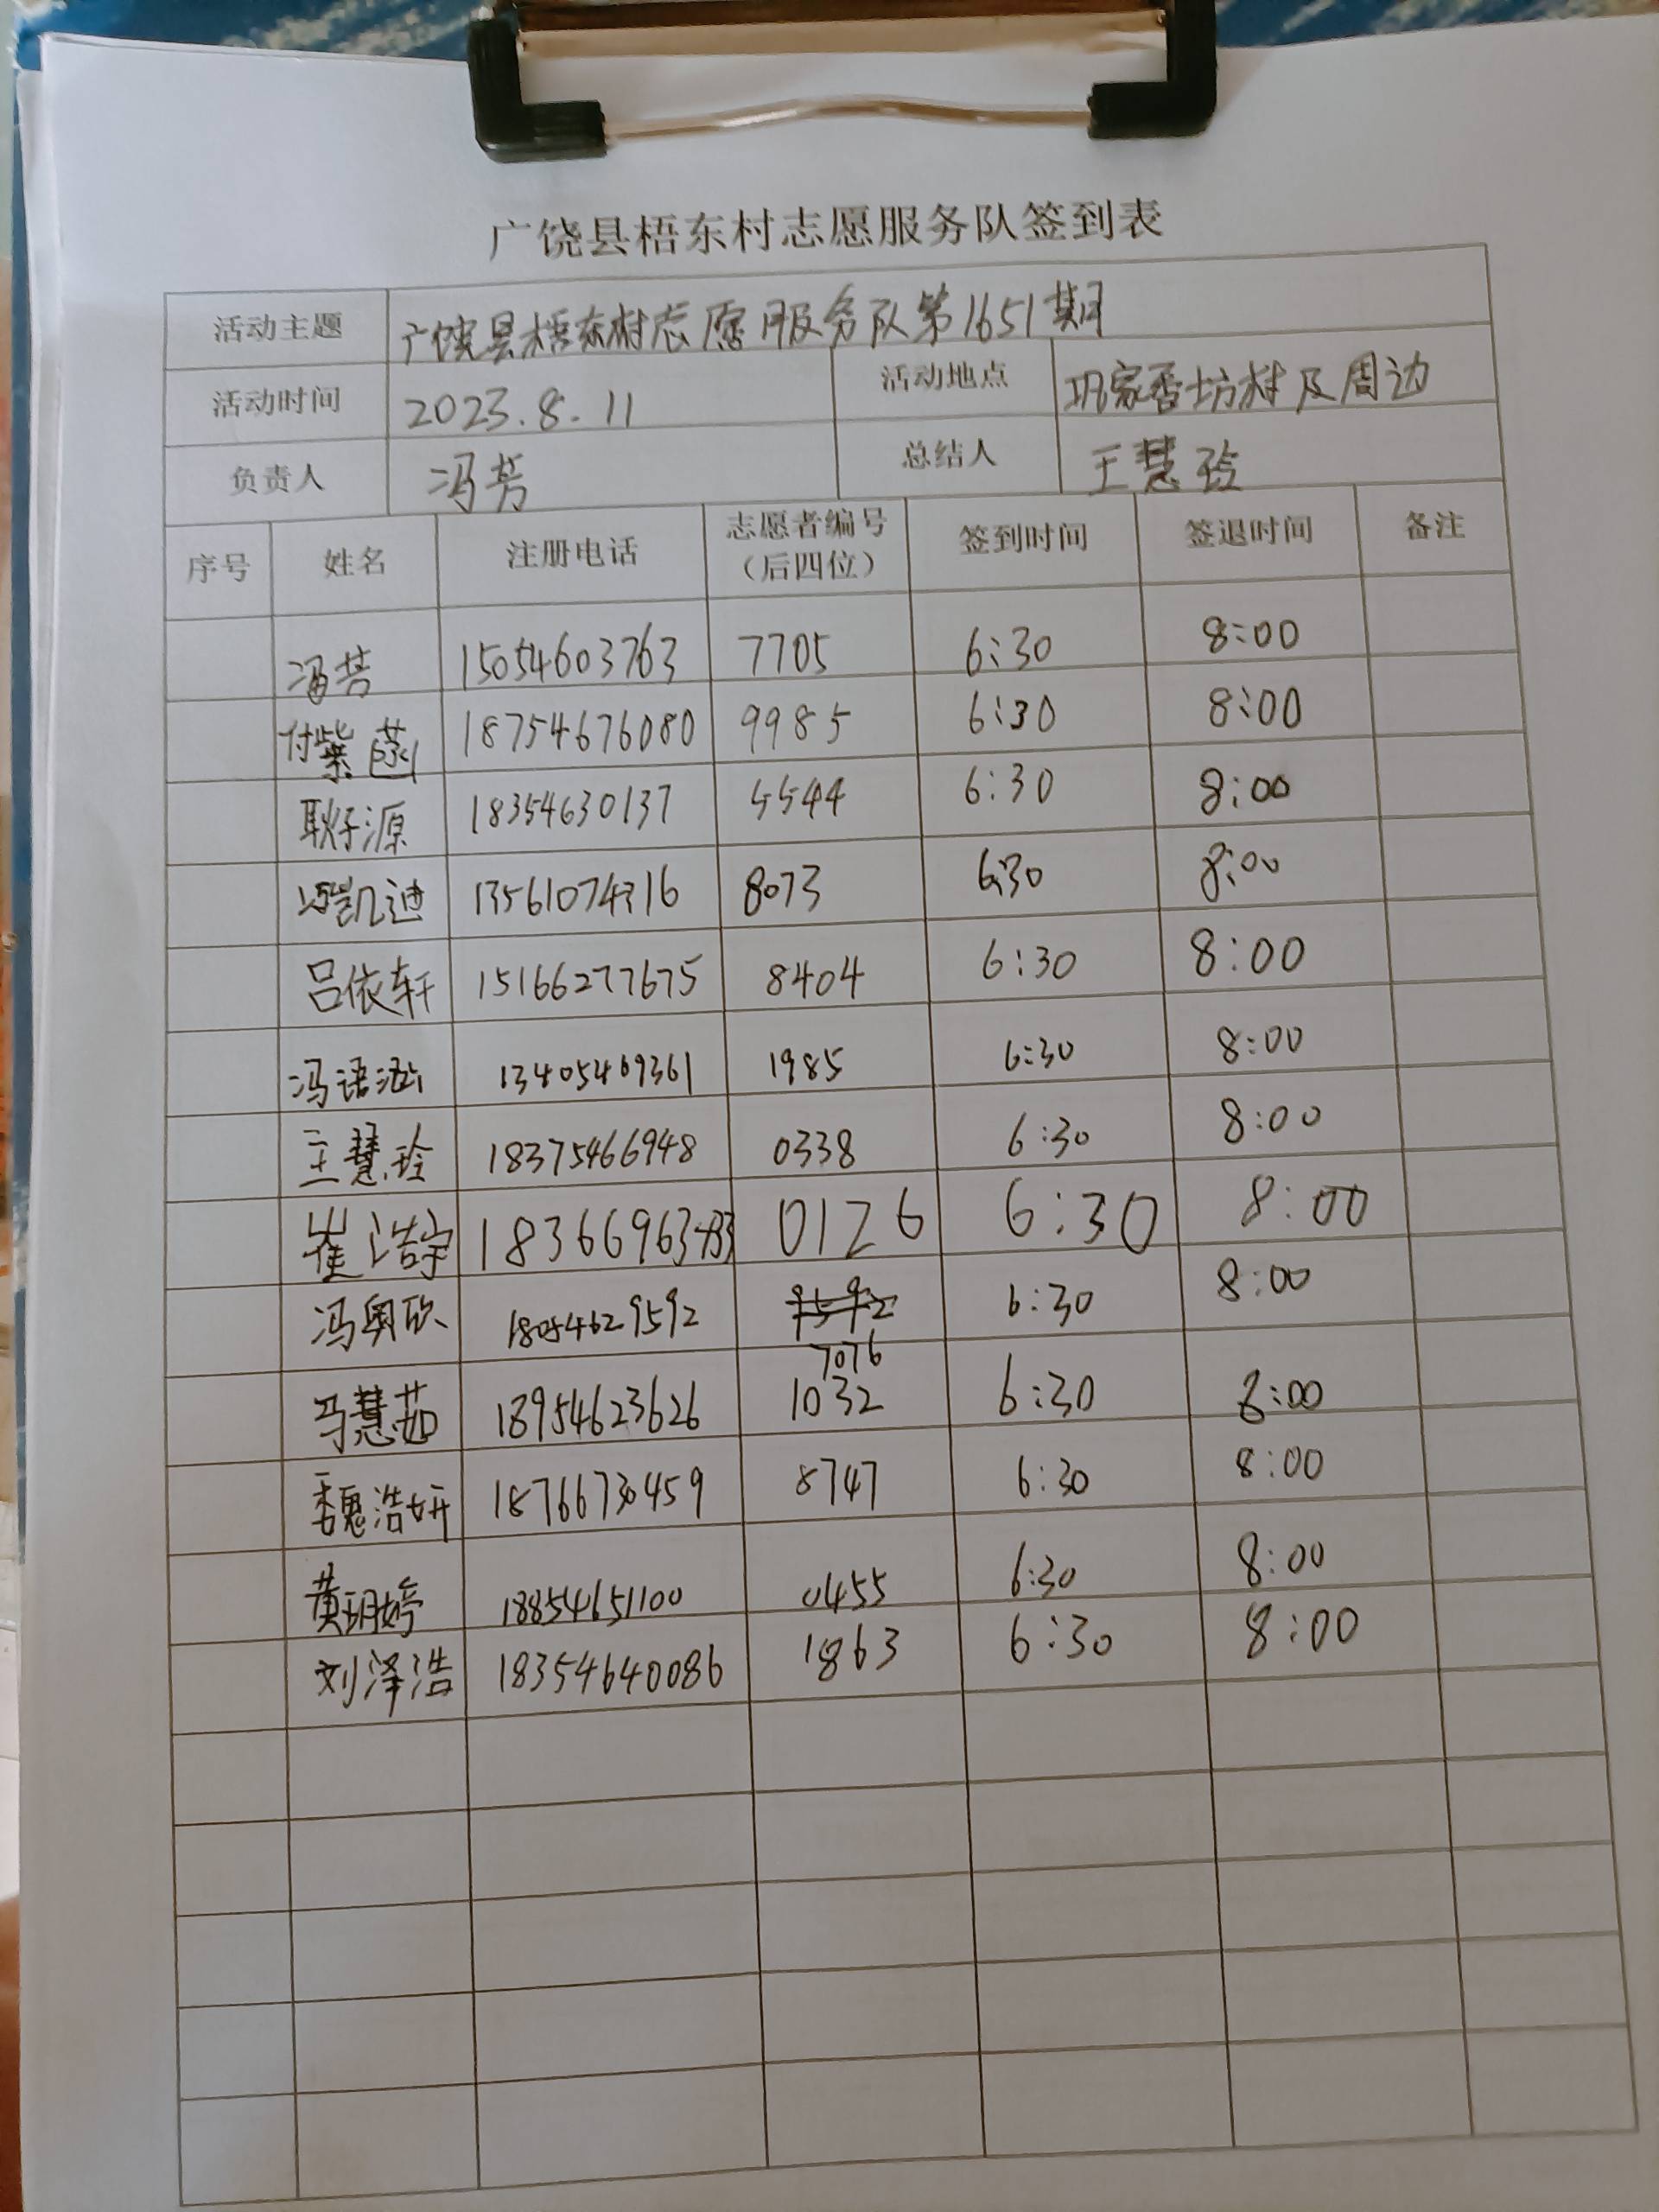 广饶县梧东村志愿服务队签到表
活动主题 广饶县梧东村志愿服务队第1651期
活动时间 2023.8.11 活动地点 巩家香坊村及周边
负责人 冯芳 总结人 王慧玲
序号 姓名 注册电话 志愿者编号（后四位） 签到时间 签退时间 备注
冯芳 15054603763 7705 6:30 8:00
付紫菡 18754676080 9985 6:30 8:00
耿子源 18354630137 5544 6:30 8:00
凯迪 13561074316 8073 6:30 8:00
吕依轩 15166277675 8404 6:30 8:00
冯语涵 13405469361 1985 6:30 8:00
王慧玲 18375466948 0338 6:30 8:00
崔浩宇 0126 6:30 8:00
冯奥欣 18054629592 9592 7076 6:30 8:00
马慧茹 18954623626 1032 6:30 8:00
魏浩妍 18766730459 8747 6:30 8:00
黄玥婷 18854651100 0455 6:30 8:00
刘泽浩 18354640086 1863 6:30 8:00